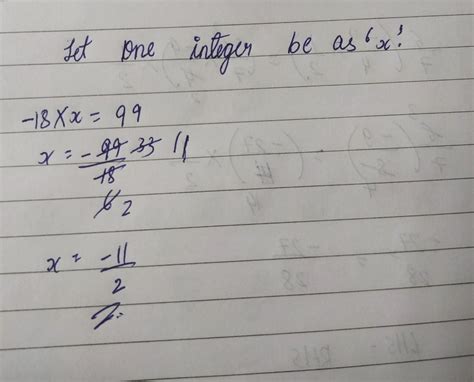 Let one integer be as 'x'.
-18 X x = 99
x = -99 33 11
18
6 2
x = -11
2